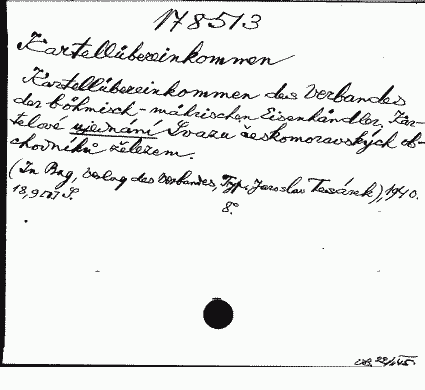 178513
Kartellübereinkommen
Kartellübereinkommen des Verbandes
der böhmisch-mährischen Eisenhändler, Kar-
telové ujednání Svazu českomoravských ob-
chodníků železem.
(In Prag, Verlag des Verbandes, Typ. Jaroslav Tesárek), 1940.
18, 9 S.
8°.